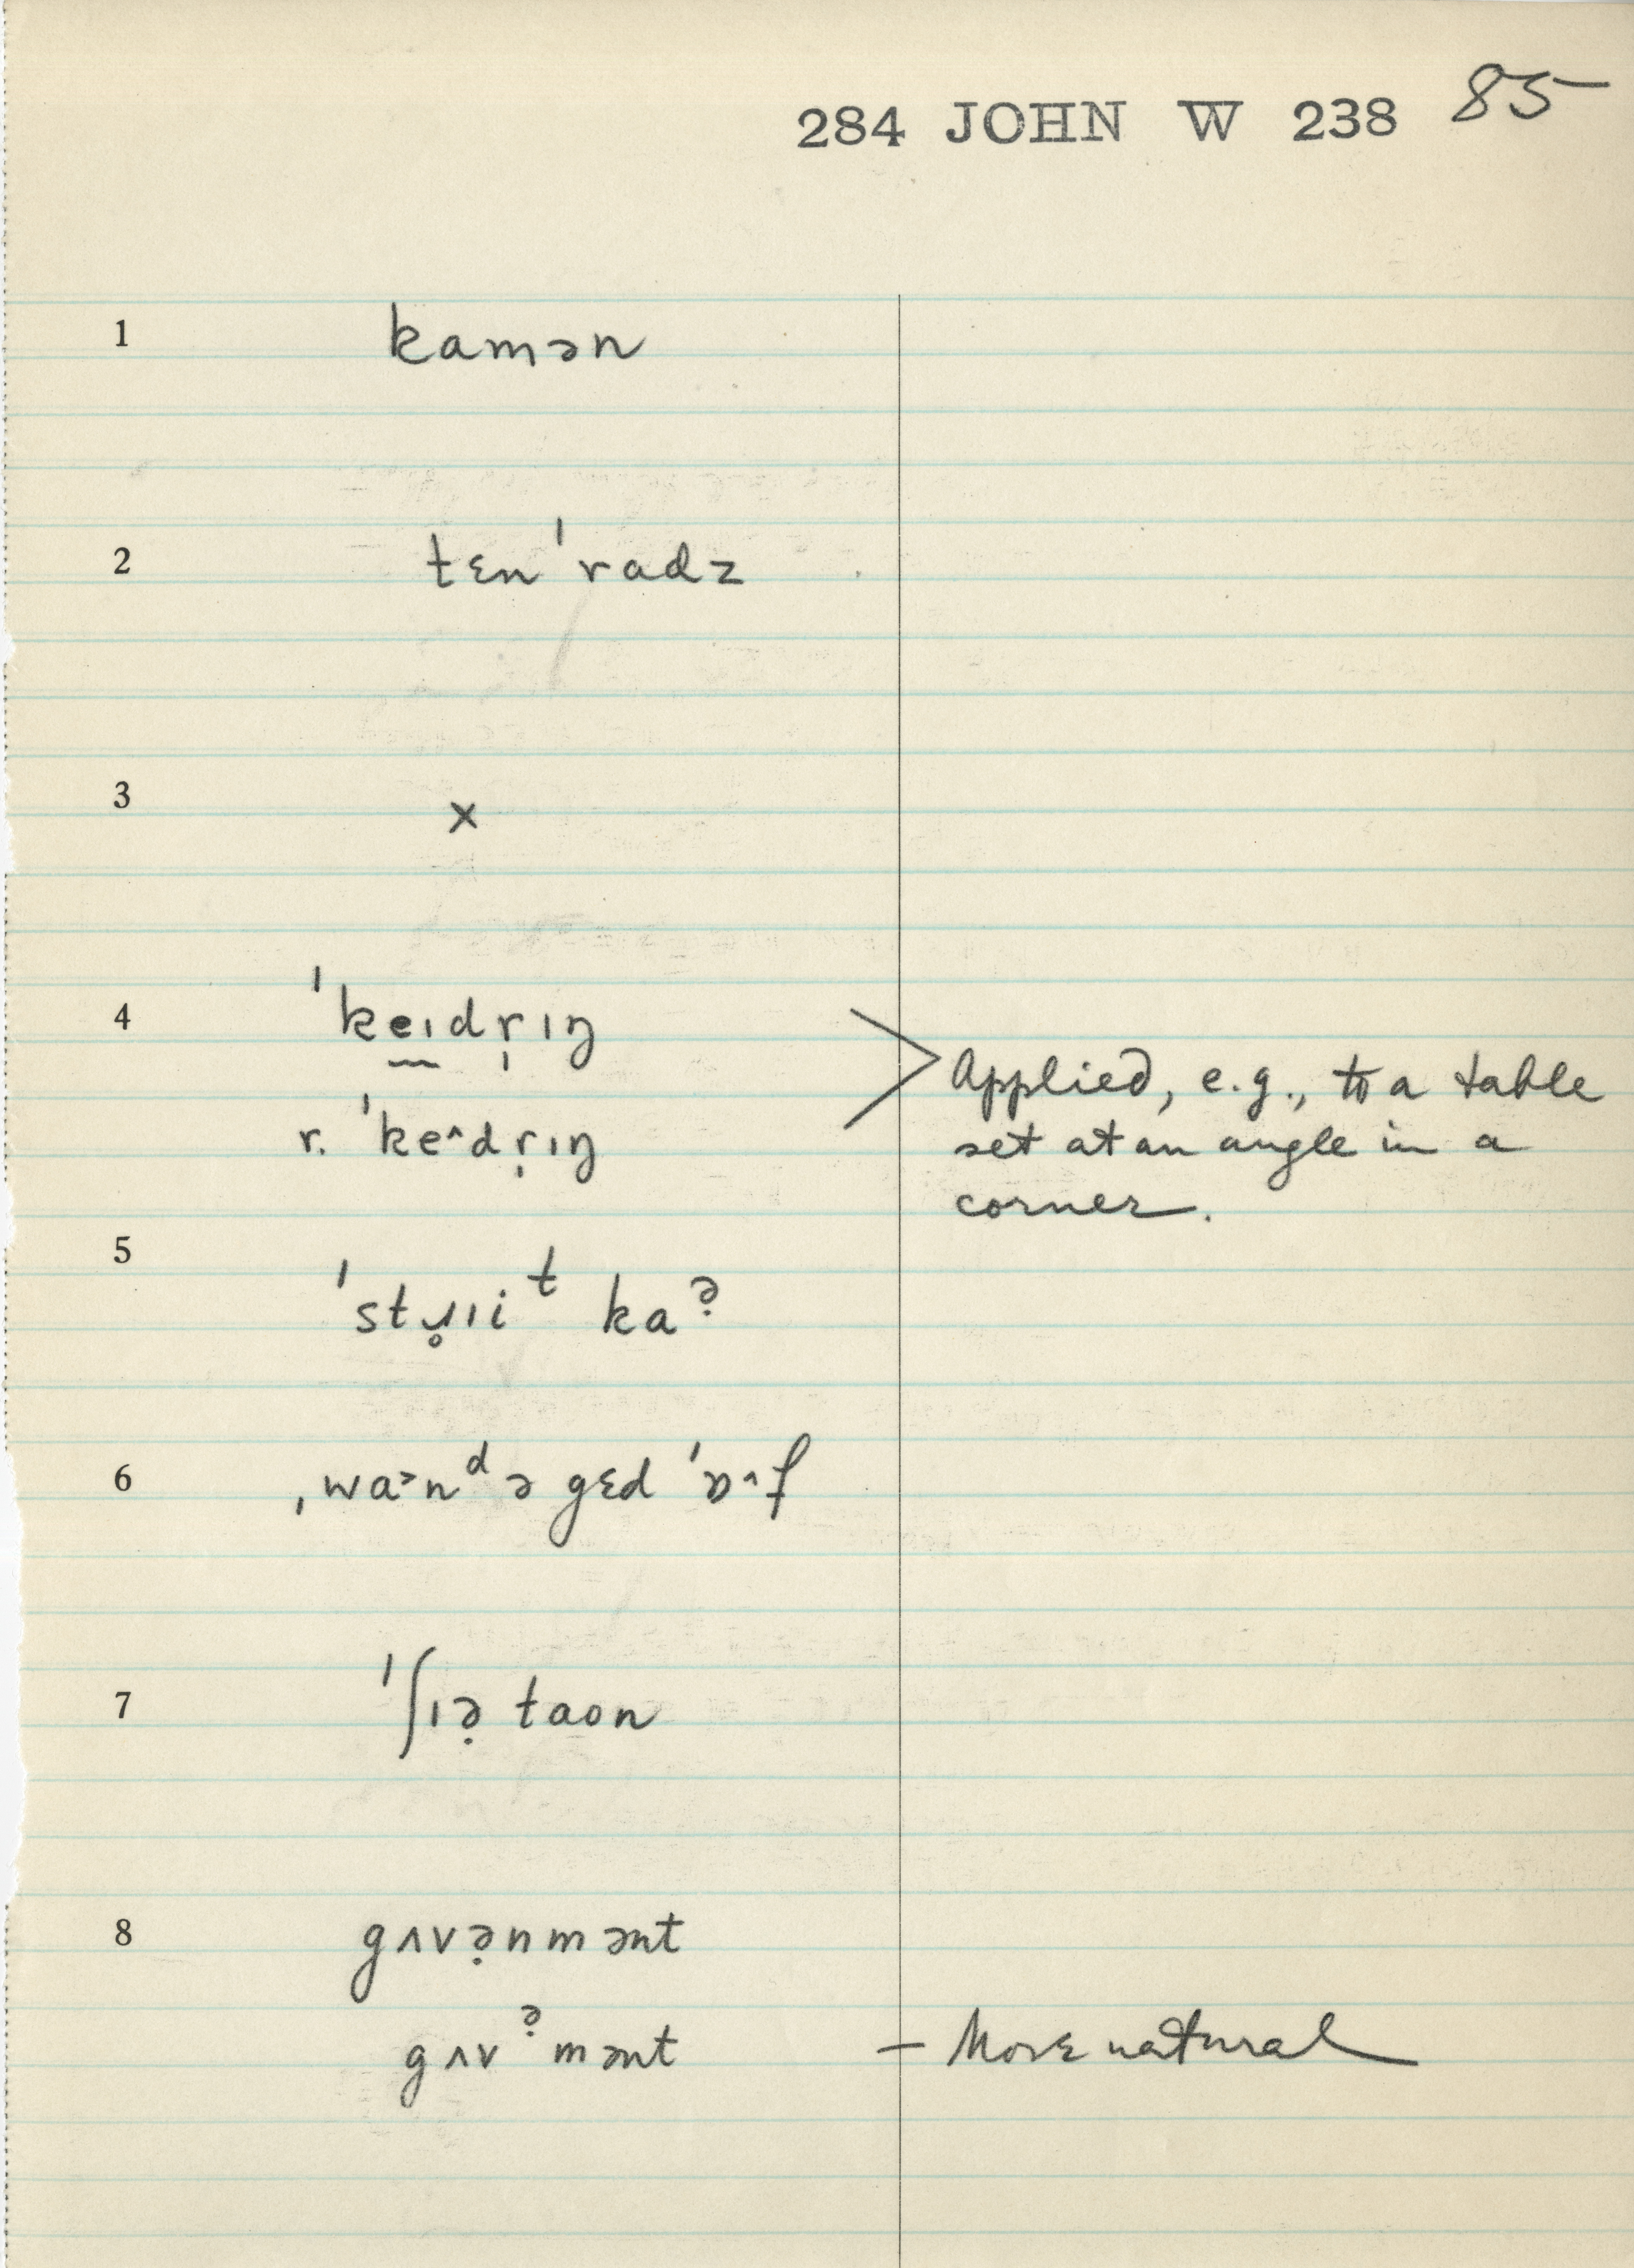 284 JOHN W 238 85
1 kamən
2 tɛn ˈradz
3 x
4 ˈkeɪdṛɪŋ
r. ˈkeˆdṛɪŋ
Applied, e.g., to a table
set at an angle in a
corner.
5 ˈstɹ̥ɪiᵗ kaə̣
6 ˌwa˃nᵈ ə gɛd ˈɒˆf
7 ˈʃɪə̣ taon
8 gʌvə̣nmənt
gʌvə̣mənt – More natural